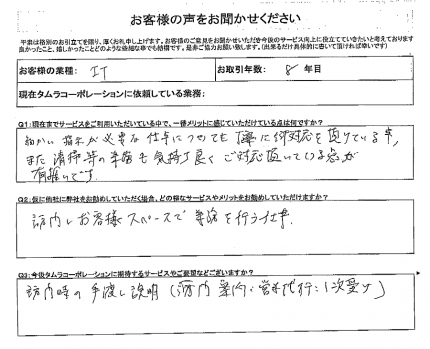 お客様の声をお聞かせください
平素は格別のお引立てを賜り、厚くお礼申し上げます。お客様のご意見をお聞かせいただき今後のサービス向上に役立てていきたいと考えております
良かったこと、嬉しかったことどのような些細な事でも結構です。是非ご協力お願い致します。(出来るだけ具体的に書いて頂ければ幸いです)
お客様の業種: IT
お取引年数: 8 年目
現在タムラコーポレーションに依頼している業務;
Q1:現在までサービスをご利用いただいている中で、一番メリットに感じていただけている点は何ですか?
細かい指示が必要な仕事についても 丁寧に御対応を頂けている事、
また 清掃等の業務も気持ち良く ご対応頂いている点が
有難いです。
Q2:仮に他社に弊社をお勧めしていただく場合、どの様なサービスやメリットをお勧めしていただけますか?
お客様スペースで 業務を行う仕事
Q3:今後タムラコーポレーションに期待するサービスやご要望などございますか?
手渡し説明